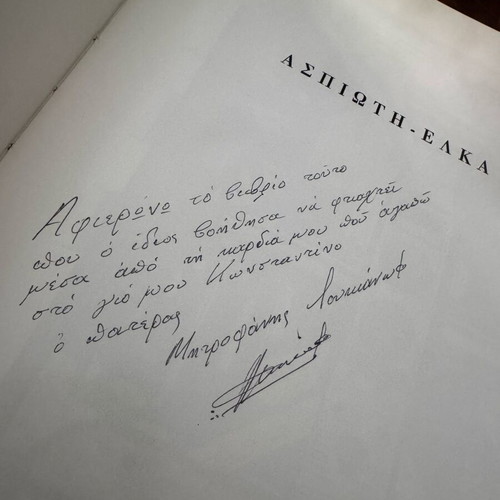 ΑΣΠΙΩΤΗ-ΕΛΚΑ
Αφιερώνω τό βιβλίο τοῦτο
που ὁ ἴδιος βοήθησα νά φτιαχτεῖ
μέσα ἀπό τή καρδιά μου πού ἀγαπῶ
στό γιό μου Κωνσταντῖνο
ὁ πατέρας
Μητροφάνης Λουκιάνωφ